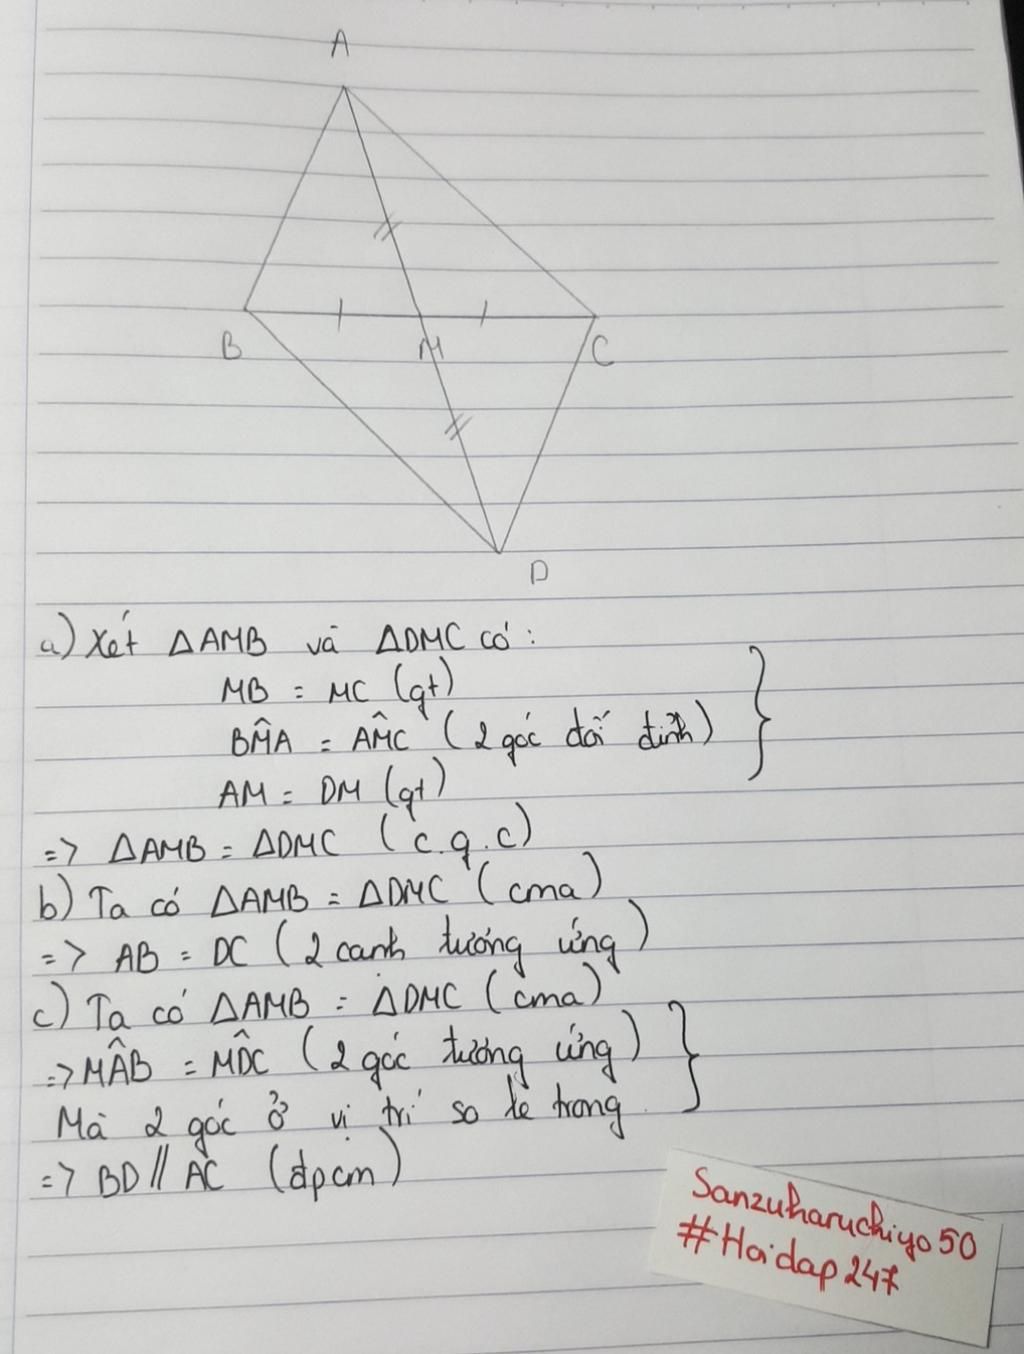 A
B
M
C
D
a) Xét ΔAMB và ΔDMC có:
MB = MC (gt)
BM̂A = AM̂C (2 góc đối đỉnh)
AM = DM (gt)
=> ΔAMB = ΔDMC (c.g.c)
b) Ta có ΔAMB = ΔDMC (cma)
=> AB = DC (2 canh tướng ứng)
c) Ta có ΔAMB = ΔDMC (cma)
=> MÂB = MD̂C (2 góc tướng ứng)
Mà 2 góc ở vị trí so le trong
=> BD // AC (đpcm)
Sanzuharuchiyo50
#Hoidap247